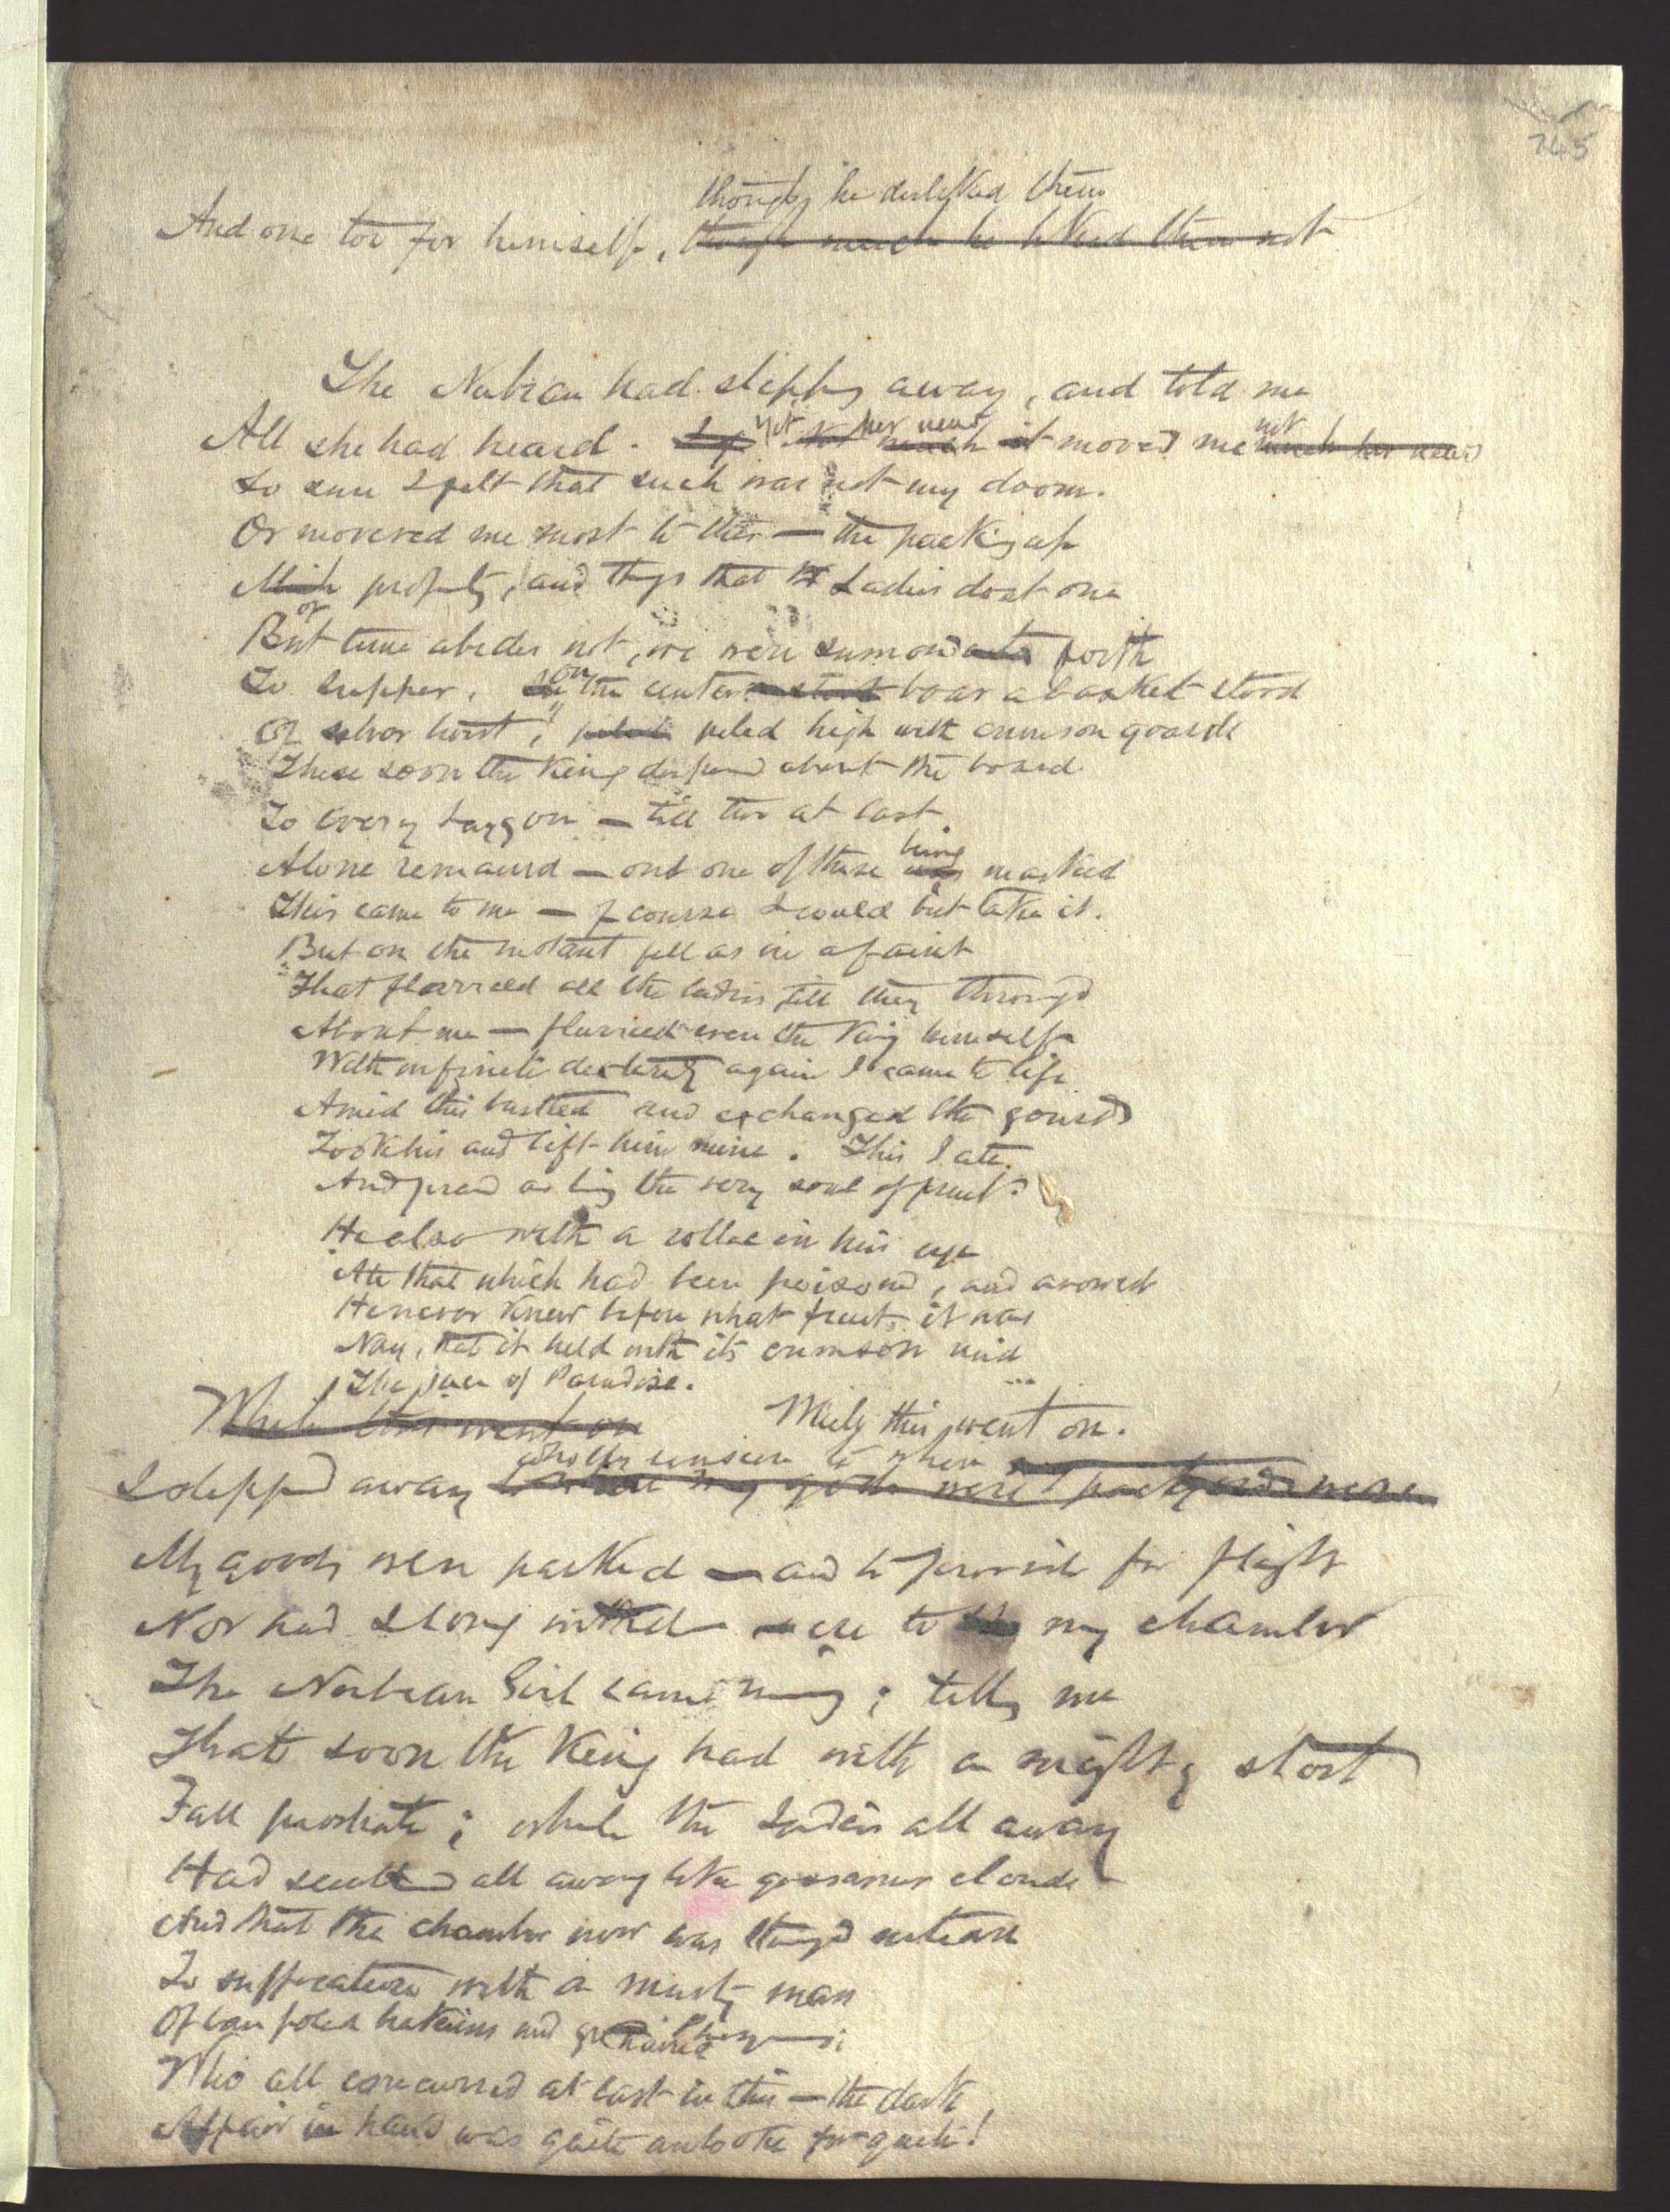 745
though he disliked them
And one too for himself, though much he liked them not
The Nubian had slipping away, and told me
All she had heard. yet her news much it moved me not much her news
So sure I felt that such was not my doom.
Or movered me most to this — the packing up
Mich property, and things that Ladies doat one
of
But time abides not, we were sumond forth
To supper. on the center boar a basket stood
Of silver hoist, piled high with crimson goards
These soon the King dispensd about the board
To every bargon — till two at last
Alone remained — and one of these being was marked
This came to me — of course I could but take it.
But on the instant fell as in a faint
That flurried all the ladies till they throngd
About me — flurried even the King himself
With infinite dexterity again I came to life
Amid this busttled and exchanged the gourds
Took his and left him mine. This I ate.
And praisd as being the very soul of fruit.
He also with a in his eye
Ate that which had been poisond, and avowed
He never knew before what fruit it was
Nay, that it held with its crimson rind
The juce of Paradise.
While this went on While this went on.
I slippd away wholly unseen to where to where my goods were packd
My goods were packed — and to provide for flight
Nor had I long when to my chamber
The Nubian Girl came running; telling me
That soon the King had with a mighty start
Fall prostrate; while the Ladies all away
Had scuttled all away like gossamer clouds
And that the chamber now was thronged instead
To suffocation with a musty man
Of and
Who all concurred at last in this — the dark
Affair in hand was quite